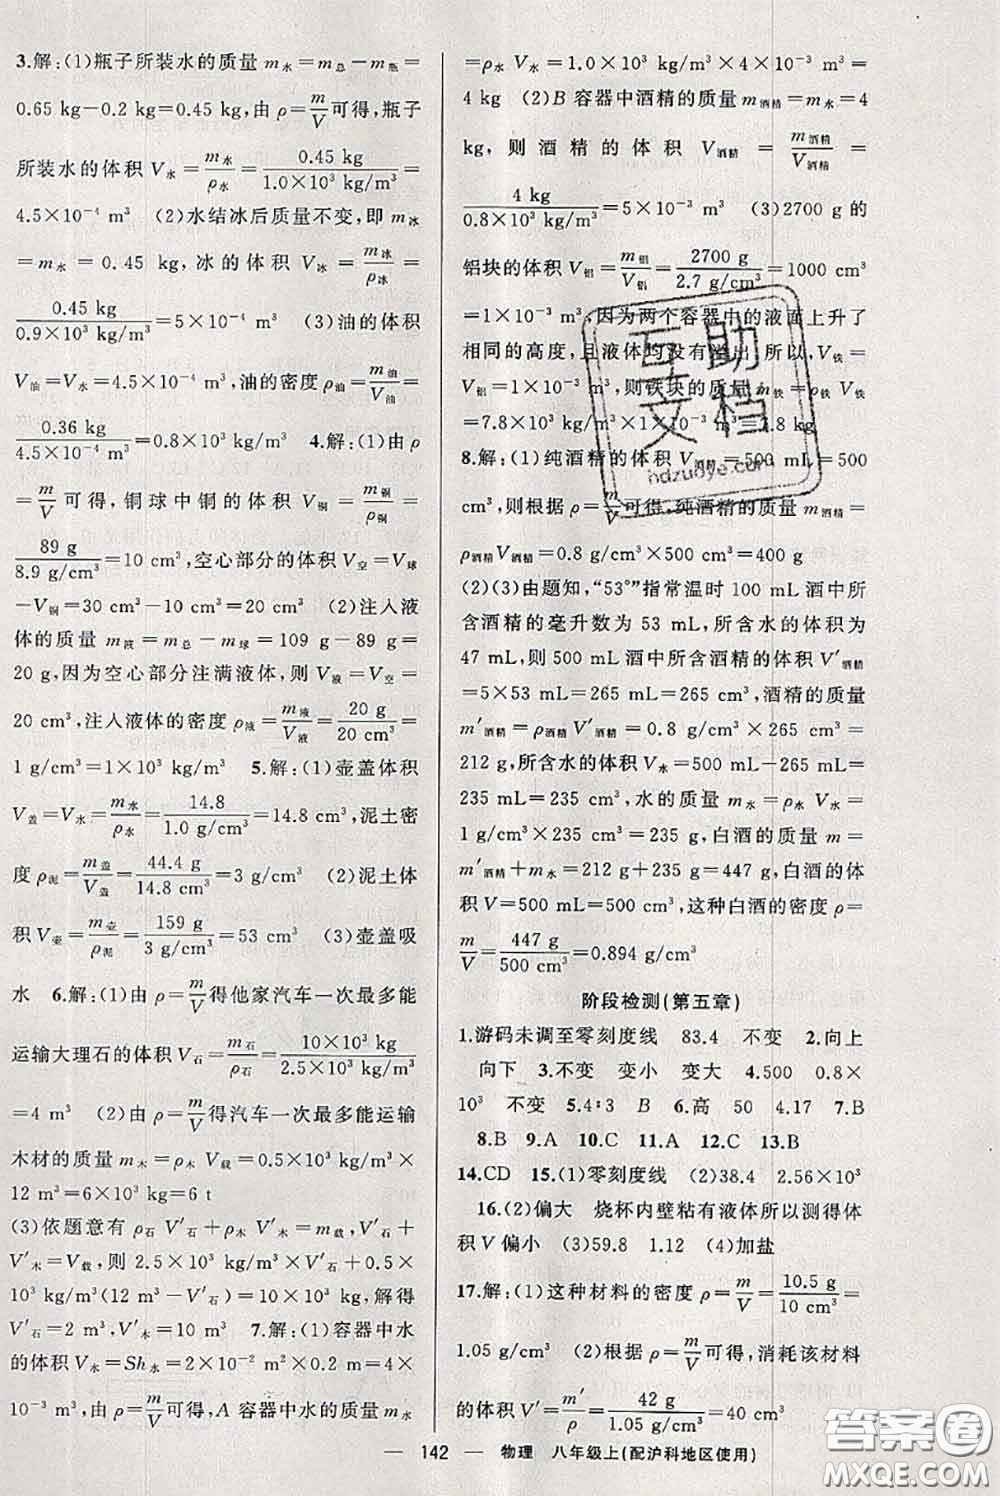 3.解:(1)瓶子所装水的质量 m水=m总-m瓶=
0.65 kg-0.2 kg=0.45 kg,由 ρ=m/V可得,瓶子
所装水的体积 V水=m水/ρ水=0.45 kg/1.0×10³ kg/m³=
4.5×10⁻⁴ m³ (2)水结冰后质量不变,即 m冰
=m水=0.45 kg,冰的体积 V冰=m冰/ρ冰=
0.45 kg/0.9×10³ kg/m³=5×10⁻⁴ m³ (3)油的体积
V油=V水=4.5×10⁻⁴ m³,油的密度 ρ油=m油/V油=
0.36 kg/4.5×10⁻⁴ m³=0.8×10³ kg/m³ 4.解:(1)由 ρ
=m/V可得,铜球中铜的体积 V铜=m铜/ρ铜=
89 g/8.9 g/cm³=10 cm³,空心部分的体积 V空=V球
-V铜=30 cm³-10 cm³=20 cm³ (2)注入液
体的质量 m液=m总-m球=109 g-89 g=
20 g,因为空心部分注满液体,则 V液=V空=
20 cm³,注入液体的密度 ρ液=m液/V液=20 g/20 cm³=
1 g/cm³=1×10³ kg/m³ 5.解:(1)壶盖体积
V盖=V水=m水/ρ水=14.8/1.0 g/cm³=14.8 cm³,泥土密
度 ρ泥=m盖/V盖=44.4 g/14.8 cm³=3 g/cm³ (2)泥土体
积 V壶=m壶/ρ泥=159 g/3 g/cm³=53 cm³ (3)壶盖吸
水 6.解:(1)由 ρ=m/V得他家汽车一次最多能
运输大理石的体积 V石=m石/ρ石=10×10³ kg/2.5×10³ kg/m³
=4 m³ (2)由 ρ=m/V得汽车一次最多能运输
木材的质量 m木=ρ木 V载=0.5×10³ kg/m³×
12 m³=6×10³ kg=6 t
(3)依题意有 ρ石 V′石+ρ木 V′木=m载,V′石+
V′木=V载,则 2.5×10³ kg/m³×V′石+0.5×
10³ kg/m³(12 m³-V′石)=10×10³ kg,解得
V′石=2 m³,V′木=10 m³ 7.解:(1)容器中水
的体积 V水=Sh水=2×10⁻² m²×0.2 m=4×
10⁻³ m³,由 ρ=m/V可得,A 容器中水的质量 m水
=ρ水 V水=1.0×10³ kg/m³×4×10⁻³ m³=
4 kg (2)B 容器中酒精的质量 m酒精=m水=4
kg,则酒精的体积 V酒精=m酒精/V酒精=
4 kg/0.8×10³ kg/m³=5×10⁻³ m³ (3)2700 g的
铝块的体积 V铝=m铝/V铝=2700 g/2.7 g/cm³=1000 cm³
=1×10⁻³ m³,因为两个容器中的液面上升了
相同的高度,且液体均没有溢出 所以,V铁=
V铝=1×10⁻³ m³,则铁块的质量 m铁=ρ铁 V铁
=7.8×10³ kg/m³×1×10⁻³ m³=7.8 kg
8.解:(1)纯酒精的体积 V酒精=500 mL=500
cm³,则根据 ρ=m/V可得,纯酒精的质量 m酒精=
ρ酒精V酒精=0.8 g/cm³×500 cm³=400 g
(2)(3)由题知,“53°”指常温时 100 mL 酒中所
含酒精的毫升数为 53 mL,所含水的体积为
47 mL,则 500 mL 酒中所含酒精的体积 V′酒精
=5×53 mL=265 mL=265 cm³,酒精的质量
m′酒精=ρ酒精 V′酒精=0.8 g/cm³×265 cm³=
212 g,所含水的体积 V水=500 mL-265 mL=
235 mL=235 cm³,水的质量 m水=ρ水 V水=
1 g/cm³×235 cm³=235 g,白酒的质量 m=
m′酒精+m水=212 g+235 g=447 g,白酒的体
积 V=500 mL=500 cm³,这种白酒的密度 ρ=
m/V=447 g/500 cm³=0.894 g/cm³
阶段检测(第五章)
1.游码未调至零刻度线 83.4 不变 2.向上
向下 3.不变 变小 变大 4.500 0.8×
10³ 不变 5.4∶3 B 6.高 50 4.17 7.B
8.B 9.A 10.C 11.A 12.C 13.B
14.CD 15.(1)零刻度线 (2)38.4 2.56×10³
16.(2)偏大 烧杯内壁粘有液体所以测得体
积 V 偏小 (3)59.8 1.12 (4)加盐
17.解:(1)这种材料的密度 ρ=m/V=10.5 g/10 cm³=
1.05 g/cm³ (2)根据 ρ=m/V可得,消耗该材料
的体积 V′=m′/ρ=42 g/1.05 g/cm³=40 cm³
— 142 — 物理 八年级上(配沪科地区使用)
互助
文档
hdzuoye.com
答案圈
MXQE.COM